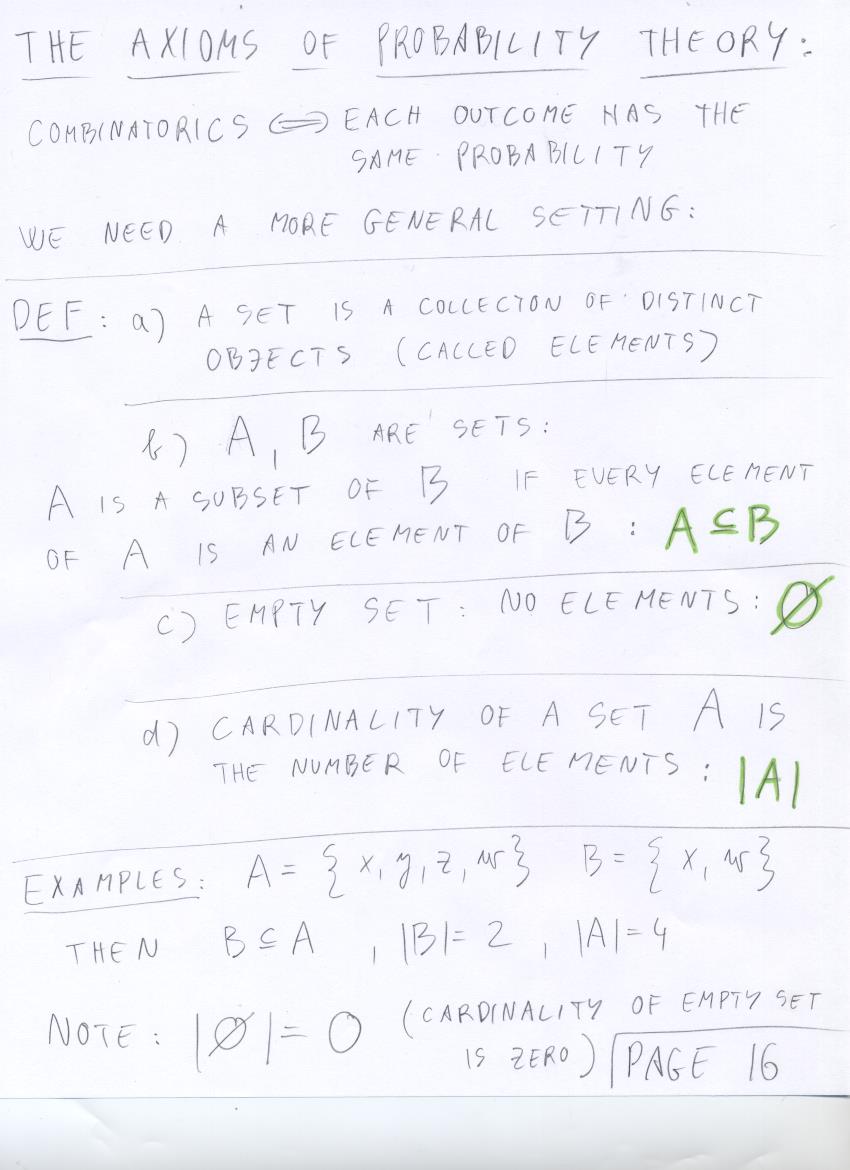 THE AXIOMS OF PROBABILITY THEORY:
COMBINATORICS ⟺ EACH OUTCOME HAS THE
SAME PROBABILITY
WE NEED A MORE GENERAL SETTING:
DEF: a) A SET IS A COLLECTON OF DISTINCT
OBJECTS (CALLED ELEMENTS)
b) A, B ARE SETS:
A IS A SUBSET OF B IF EVERY ELEMENT
OF A IS AN ELEMENT OF B : A ⊆ B
c) EMPTY SET: NO ELEMENTS: ∅
d) CARDINALITY OF A SET A IS
THE NUMBER OF ELEMENTS : |A|
EXAMPLES: A = {x, y, z, w} B = {x, w}
THEN B ⊆ A , |B| = 2 , |A| = 4
NOTE: |∅| = 0 (CARDINALITY OF EMPTY SET
IS ZERO) PAGE 16